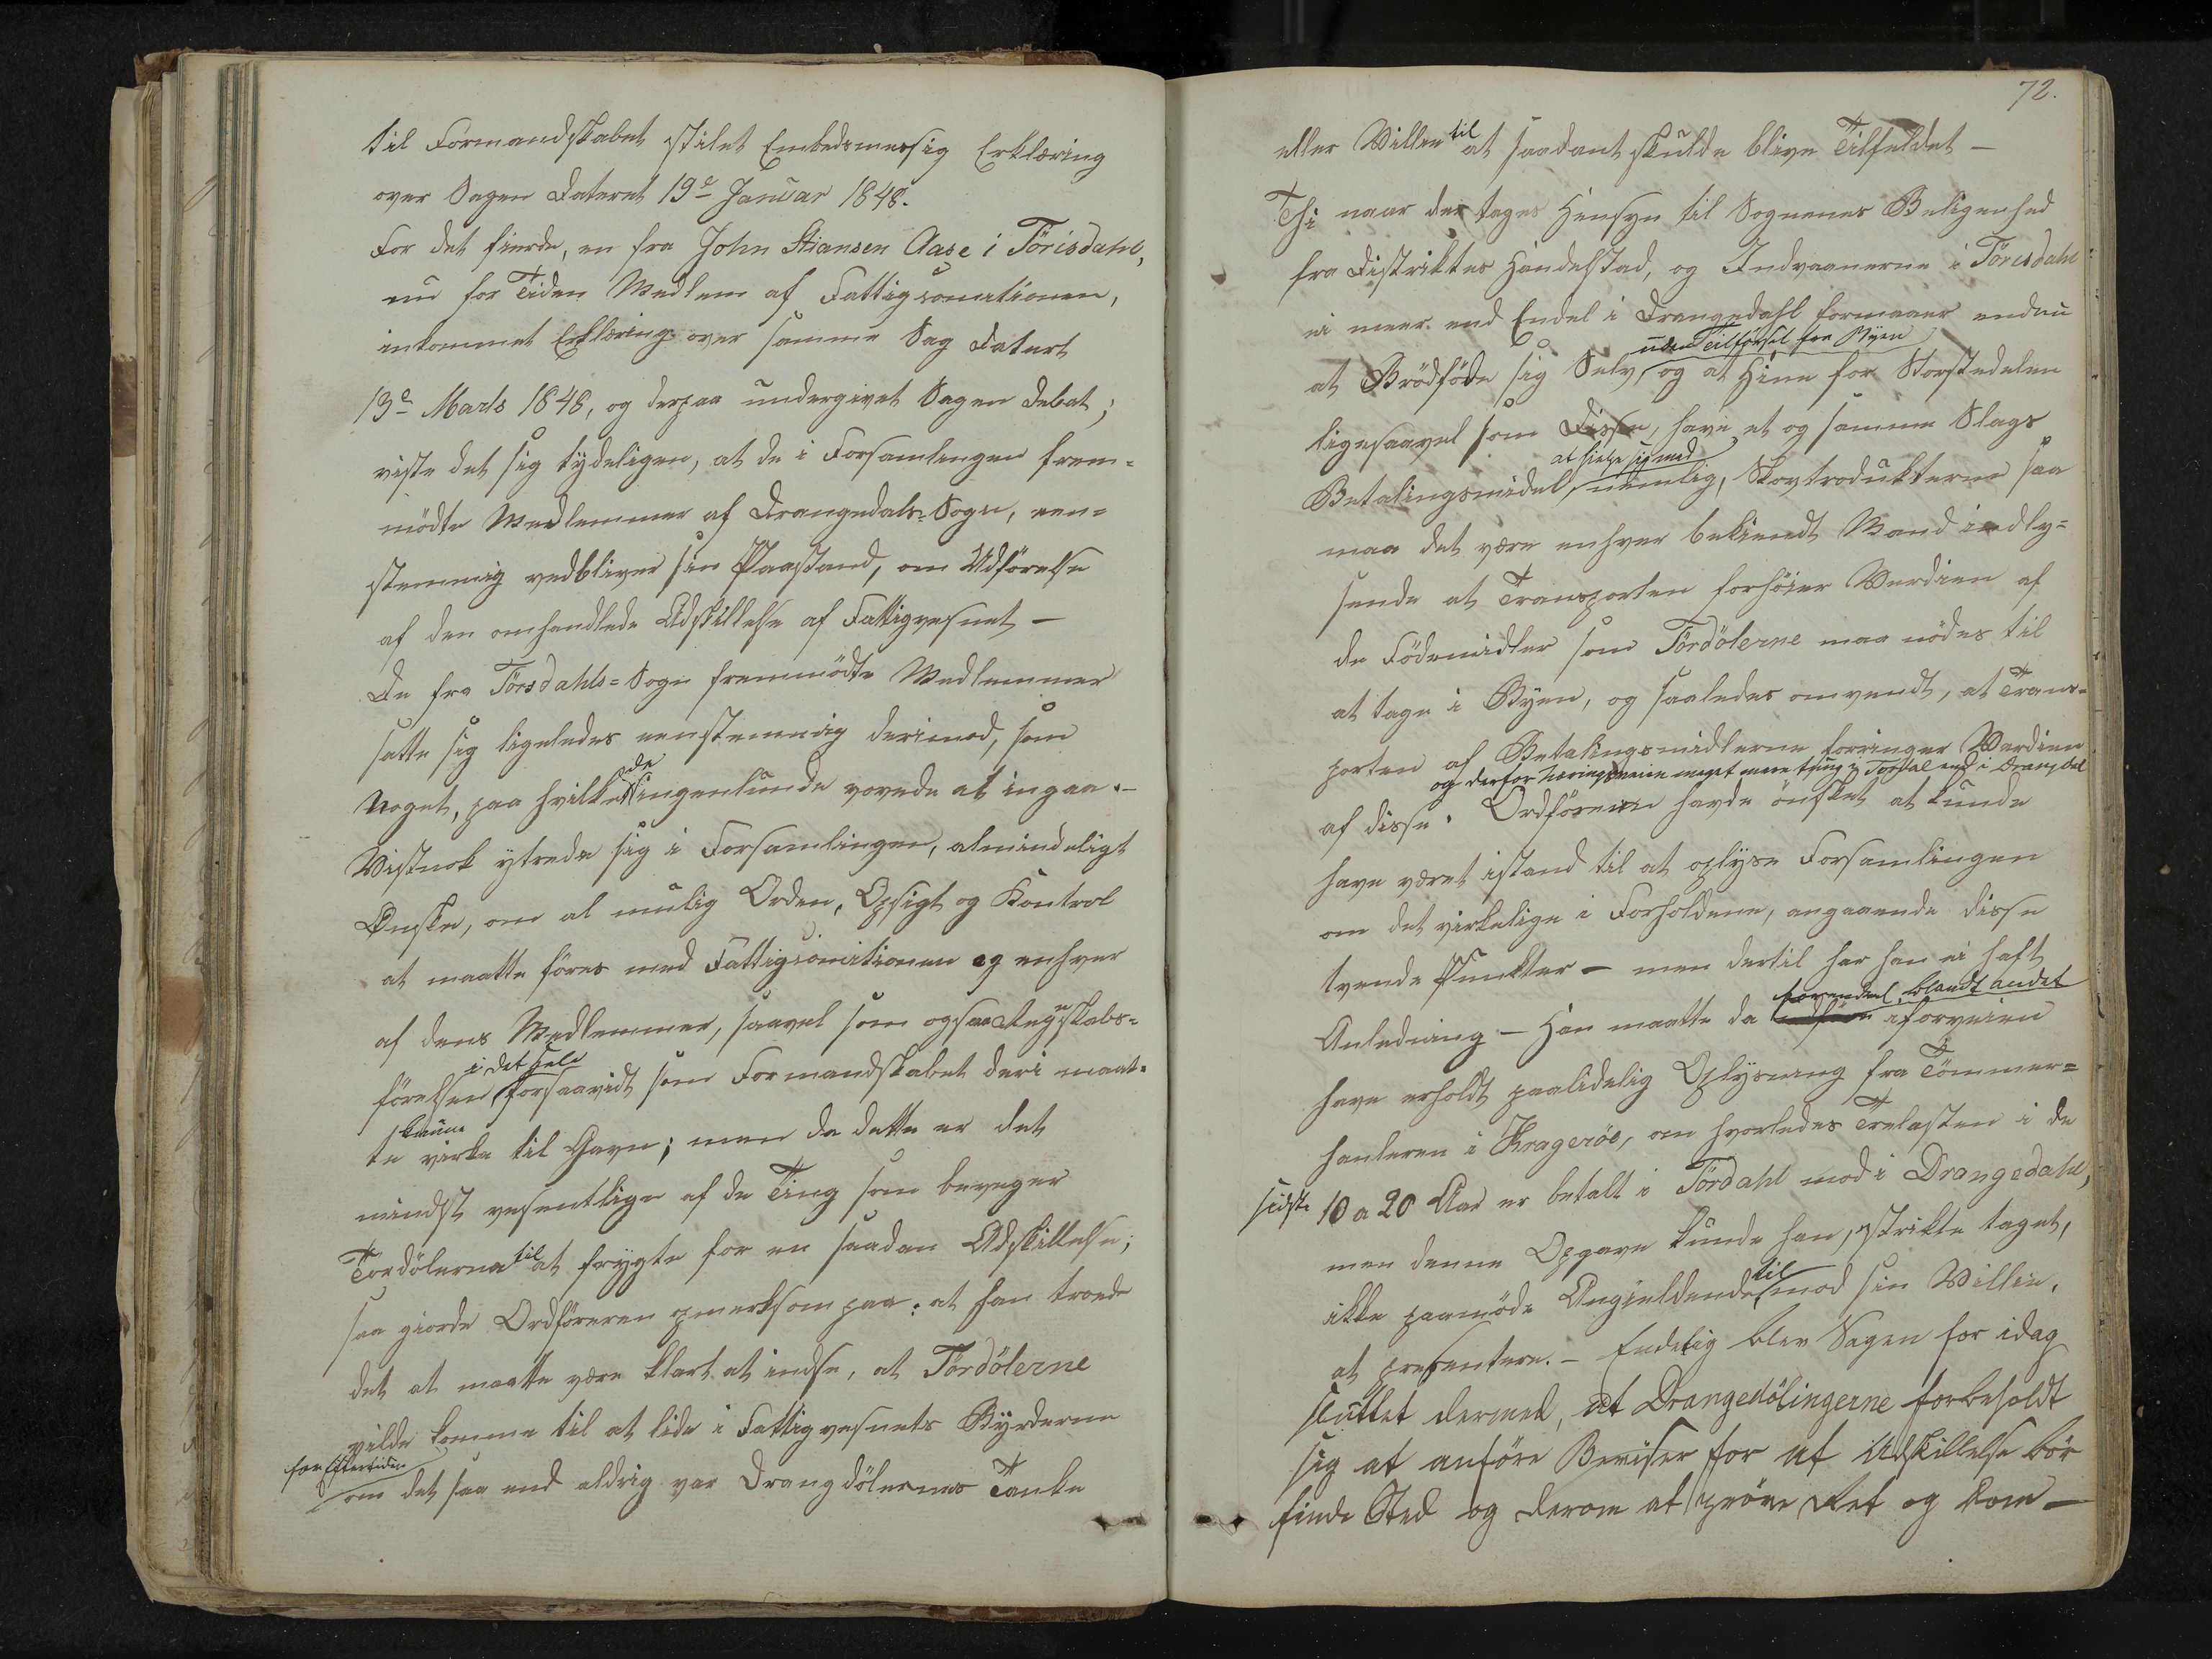 til Formandskabet stilet Embedsmessig Erklæring
over Sagen Dateret 19de Januar 1848.
For det fierde, en fra John Stiansen Aase i Törisdahl,
nu for Tiden Medlem af Fattigcomitionen,
inkommet Erklæring over samme Sag Datert
13de Marts 1848, og derpaa undergivet Sagen Debat;
viste det sig tydeligen, at de i Forsamlingen frem=
mödte Medlemmer af Drangedals-Sogn, een=
stemmig vedbliver sin Paastand, om Udförelse
af den omhandlede Adskillelse af Fattigvesnet —
De fra Törsdahls=Sogn fremmödte Medlemmer
satte sig ligeledes eenstemmig derimod, som
Noget, paa hvilket de ingenlunde vovede at ingaa.—
Vistnok ytrede sig i Forsamlingen, almindeligt
Ønske, om al mulig Orden, Opsigt og Kontrol
at maatte föres med Fattigcomitionen og enhver
af dens Medlemmer, saavel som ogsaa Regnskabs=
i det hele
förelsen forsaavidt som Formandskabet deri maat=
kunne
te virke til Gavn; men da dette er det
mindst vesentlige af de Ting som beveger
Tordölerne til at frygte for en saadan Adskillelse;
saa giorde Ordföreren opmerksom paa: at han troede
det at maatte være klart at indse, at Tördölerne
vilde komme til at lide i Fattigvesnets Byrderne
for Eftertiden
om det saa end aldrig var Drangdölernes Tanke
72.
eller Villie til at saadant skulde blive Tilfeldet —
Thi naar der tages Hensyn til Sognenes Beligenhed
fra Distriktes Handelstad, og Indvaanerne i Törisdahl
ei meer end Endel i Drangedahl formaaer endnu
uden Tilförsel fra Byen
at Brödföde sig Selv, og at Hine for Storstedelen
ligesaavel som Disse, have et og samme Slags
at hielpe sig med
Betalingsmidel, nemlig, Skovprodukterne saa
maa det være enhver bekiendt Mand indly=
sende at Transporten forhöier Verdien af
de Födemidler som Tördölerne maa nödes til
at tage i Byen, og saaledes omvendt, at Trans=
porten af Betalingsmidlerne forringer Verdien
og derfor Næringsveien meget mere tung i Tordal end i Drangdal
af disse. Ordföreren havde önsket at kunde
have været istand til at oplyse Forsamlingen
om det virkelige i Forholdene, angaaende disse
tvende Punkter — men dertil har han ei haft
forinden blandt andet
Anledning — Han maatte da iforveien
have erholdt paalidelig Oplysning fra Tömmer=
hanleren i Kragerøe, om hvorledes Trelasten i de
sidste 10 a 20 Aar er betalt i Tördahl mod i Drangedahl,
men denne Opgave kunde han, strikte taget,
ikke paamöde Angieldende til mod sin Villie,
at presentere. — Endelig blev Sagen for idag
sluttet dermed, at Drangedölingerne forbeholdt
sig at anföre Beviser for at Adskillelse bör
finde Sted og derom at pröve Ret og Dom —